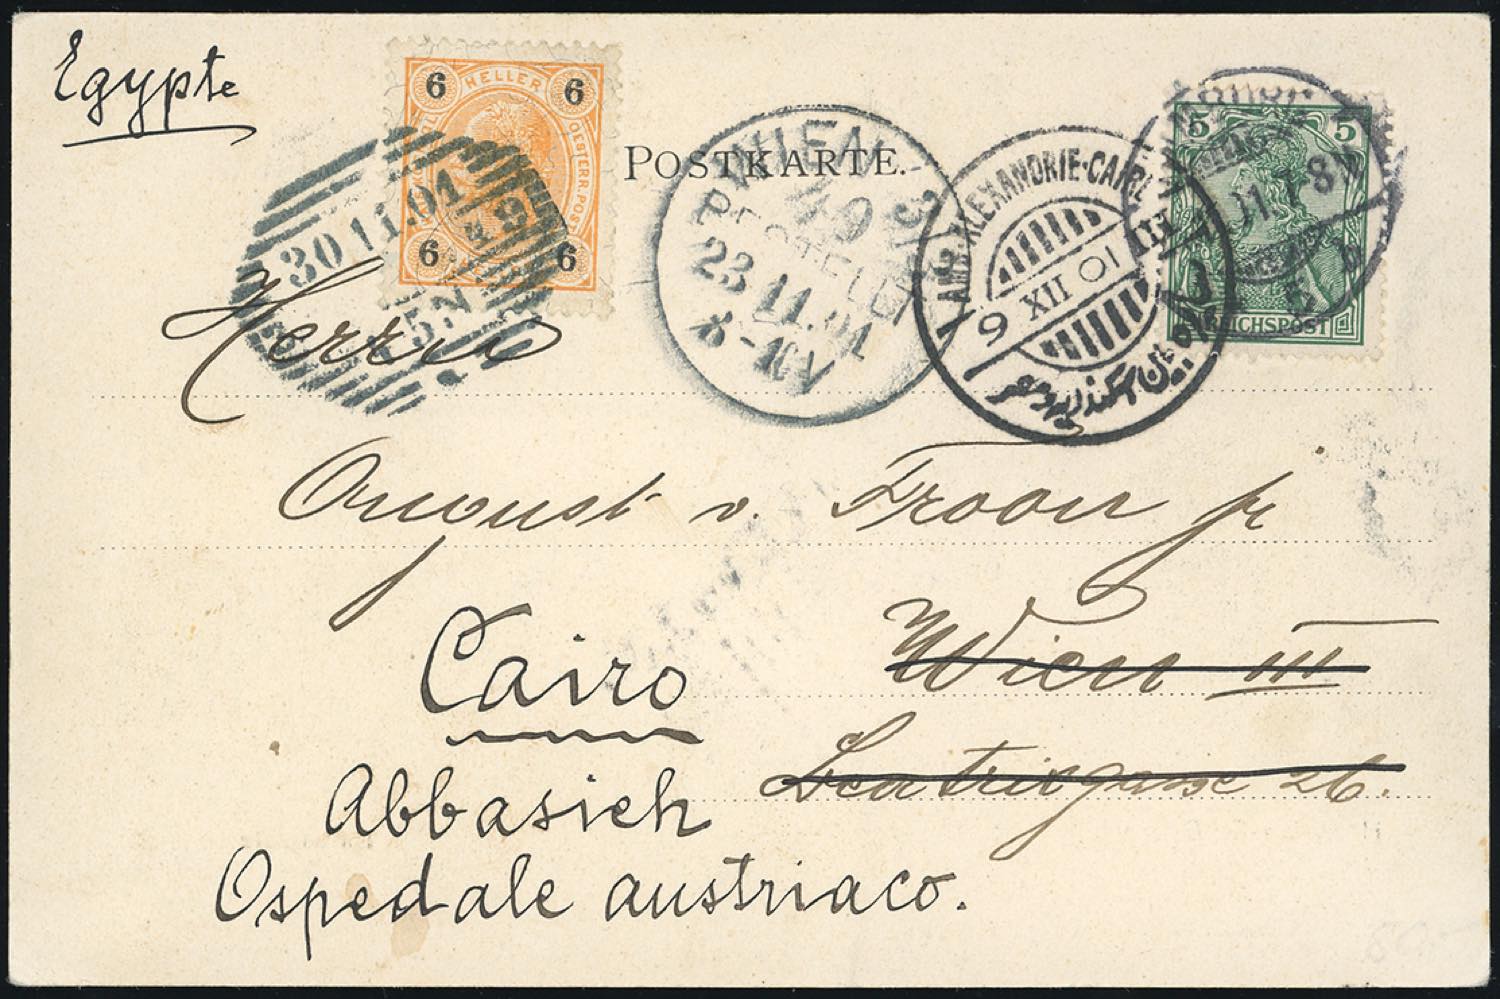 Egypte
6 HELLER 6
OESTERR. POST
6 6
30 11.01
POSTKARTE.
WIEN
49
BESTELLT
23 11.01
AMB. ALEXANDRIE-CAIRE
9 XII 01
5 5
REICHSPOST
Herrn
August v. Froon jr
Wien III
26.
Cairo
Abbasieh
Ospedale austriaco.